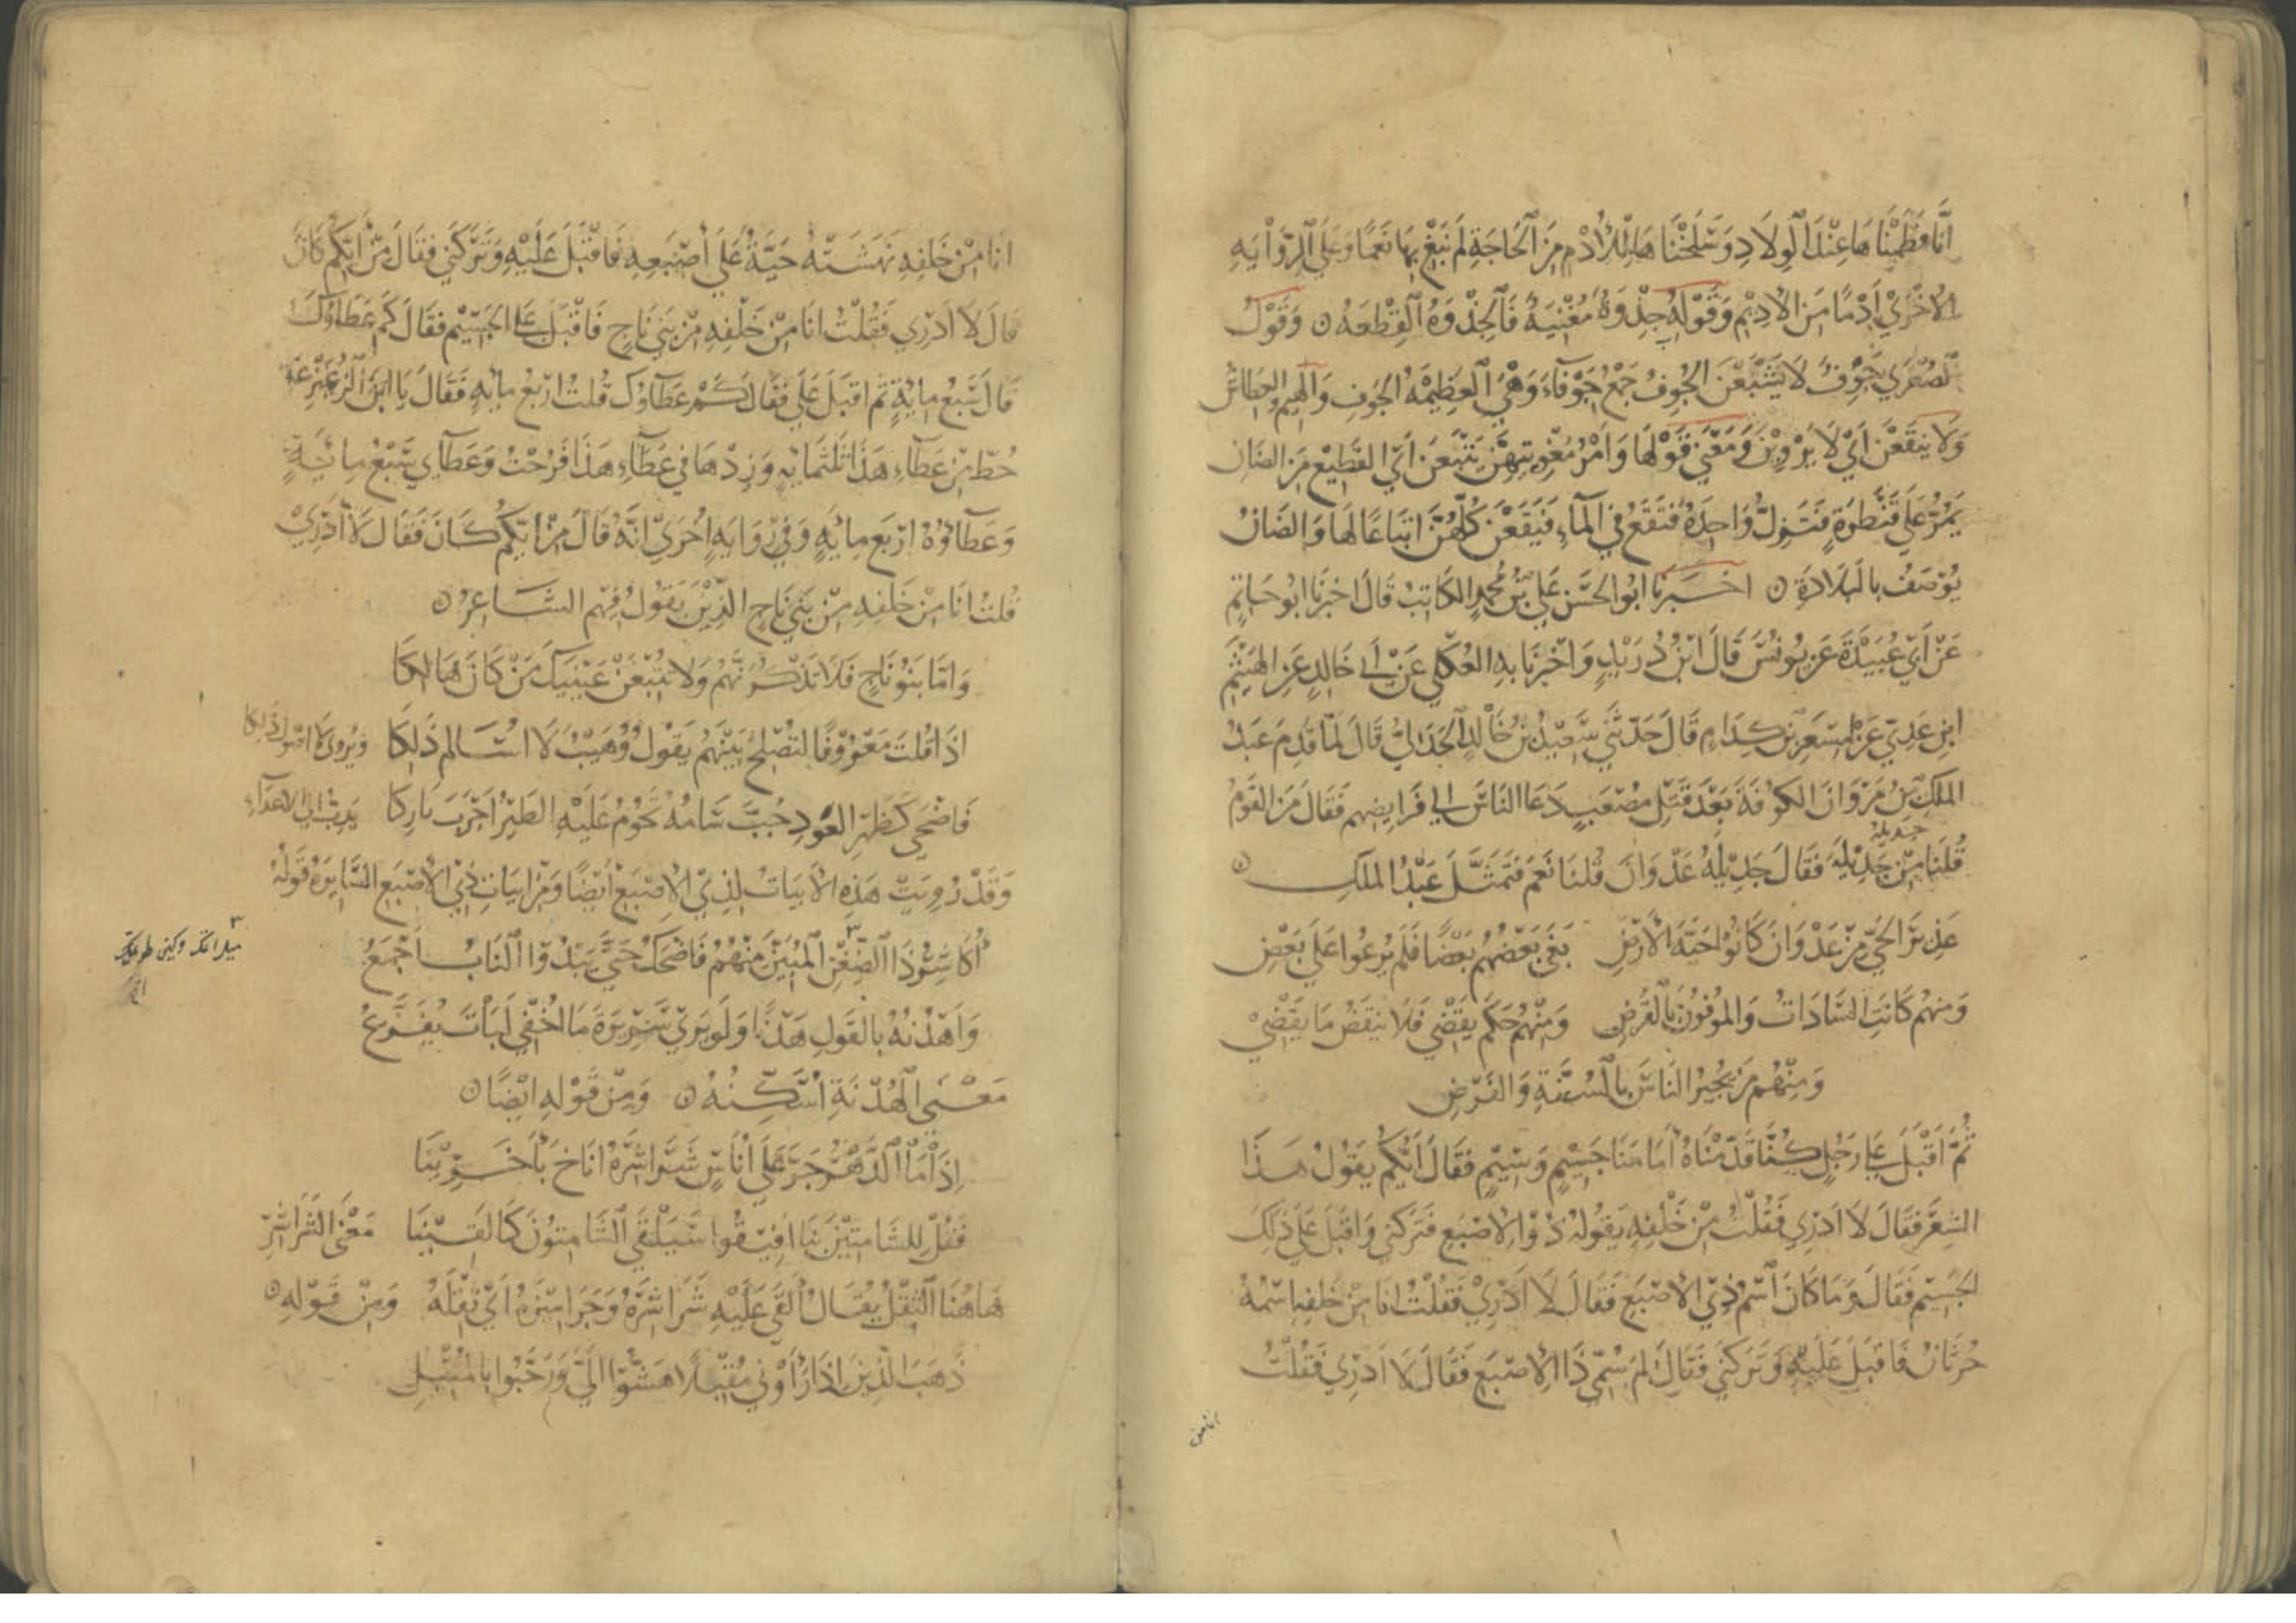 أنا فطمناها عند الولاد وسلخناها للأدم من الحاجة لم نبغ بها نعما وعلى الرواية
الاخرى أدما من الاديم وقوله جذوة مغنية فالجذوة القطعة ن وقول
الصغرى جوف لا يشبعن الجوف جمع جوفاء وهي العظيمة الجوف والهيم العطاش
ولا ينقعن أي لا يروين ومعنى قولها وأمر مغويتهن يتبعن أي القطيع من الضان
يمر على قنطرة فتزل واحدة فتقع في الماء فيقعن كلهن اتباعا لها والضان
يوصف بالبلادة ن اخبرنا ابو الحسن علي بن محمد الكاتب قال اخبرنا ابو حاتم
عن أبي عبيدة عن يونس قال ابن دريد واخبرنا به العكلي عن أبي خالد عن الهيثم
ابن عدي عن مسعر بن كدام قال حدثني سعيد بن خالد الجدلي قال لما قدم عبد
الملك بن مروان الكوفة بعد قتل مصعب دعا الناس الى فرايضهم فقال من القوم
جديلة
قلنا من جديلة فقال جديلة عدوان قلنا نعم فتمثل عبد الملك ن
عذير الحي من عدوان كانوا حية الأرض بغى بعضهم بعضا فلم يرعوا على بعض
ومنهم كانت السادات والموفون بالقرض ومنهم حكم يقضي فلا ينقض ما يقضي
ومنهم من يجيز الناس بالسنة والفرض
ثم أقبل على رجل كنا قدمناه أمامنا جسيم وسيم فقال أيكم يقول هذا
الشعر فقال لا ادري فقلت من خلفه يقوله ذو الاصبع فتركني واقبل على ذلك
الجسيم فقال وما كان اسم ذي الاصبع فقال لا ادري فقلت انا من خلفه اسمه
حرثان فاقبل عليه وتركني فقال لم سمي ذا الاصبع فقال لا ادري فقلت
انا من
انا من خلفه نهشته حية على أصبعه فاقبل عليه وتركني فقال من أيكم كان
قال لا ادري فقلت انا من خلفه من بني ناج فاقبل على الجسيم فقال كم عطاؤك
قال سبع ماية ثم اقبل علي فقال كم عطاؤك قلت اربع ماية فقال يا ابن الزعيزعة
حط من عطاء هذا ثلثماية وزدها في عطاء هذا فرحت وعطاي سبع ماية
وعطاؤه اربع ماية وفي رواية اخرى انه قال من ايكم كان فقال لا أدري
قلت انا من خلفه من بني ناج الذين يقول فيهم الشاعر ن
واما بنو ناج فلا تذكرنهم ولا تتبعن عينيك من كان هالكا
اذا قلت معروفا لتصلح بينهم يقول وهيب لا اسالم ذلكا ويروى لا اقول ذلكا
فاضحى كظهر العود جب سنامه تحوم عليه الطير أجرب باركا يدب الى الاعداء
وقد رويت هذه الأبيات لذي الاصبع أيضا ومن ابيات ذي الاصبع السايرة قوله
أكاشر ذا الضغن المبين منهم فاضحك حتى يبدو الناب أجمع
وأهدنه بالقول هدنا ولو يرى سريرة ما أخفي لبات يفزع
معنى الهدنة اسكنه ن ومن قوله ايضا ن
إذا ما الدهر جر على أناس شراشره اناخ بأخرينا
فقل للشامتين بنا أفيقوا سيلقى الشامتون كما لقينا معنى الشراشر
هاهنا الثقل يقال ألقى عليه شراشره وجراميزه أي ثقله ومن قوله ن
ذهب الذين اذا رأوني مقبلا هشوا الي ورحبوا بالمقبل